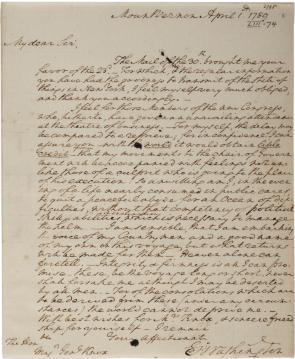 Mount Vernon April 1st 1789
My dear Sir,
The Mail of the 30th brought me your
favor of the 23d. — For which, & the regular information
you have had the goodness to transmit of the state of
things in New York, I feel myself very much obliged,
and thank you accordingly. —
I feel for those Members of the new Congress,
who, hitherto, have given an unavailing attendance
at the theatre of business. — For myself, the delay may
be compared to a reprieve; for in confidence I can
assure you — with the world it would obtain little
credit — that my movements to the chair of Govern-
ment will be accompanied with feelings not un-
like those of a culprit who is going to the place
of his execution: so unwilling am I, in the even-
ing of a life nearly consumed in public cares
to quit a peaceful abode for an Ocean of dif-
ficulties, without that competency of political
skill, abilities & inclination which is necessary to manage
the helm. — I am sensible, that I am embarking
the voice of my Countrymen and a good name
of my own, on this voyage, but what returns
will be made for them — Heaven alone can
foretell. — Integrity & firmness is all I can pro-
mise — these, be the voyage long or short, never
shall forsake me although I may be deserted
by all men. — For of the consolations which are
to be derived from these (under any circum-
stances) the world cannot deprive me. —
With best wishes for Mrs. Knox, & sincere friend-
ship for yourself — I remain
Your affectionate
Go: Washington
The Honble
Majr. Genl. Knox